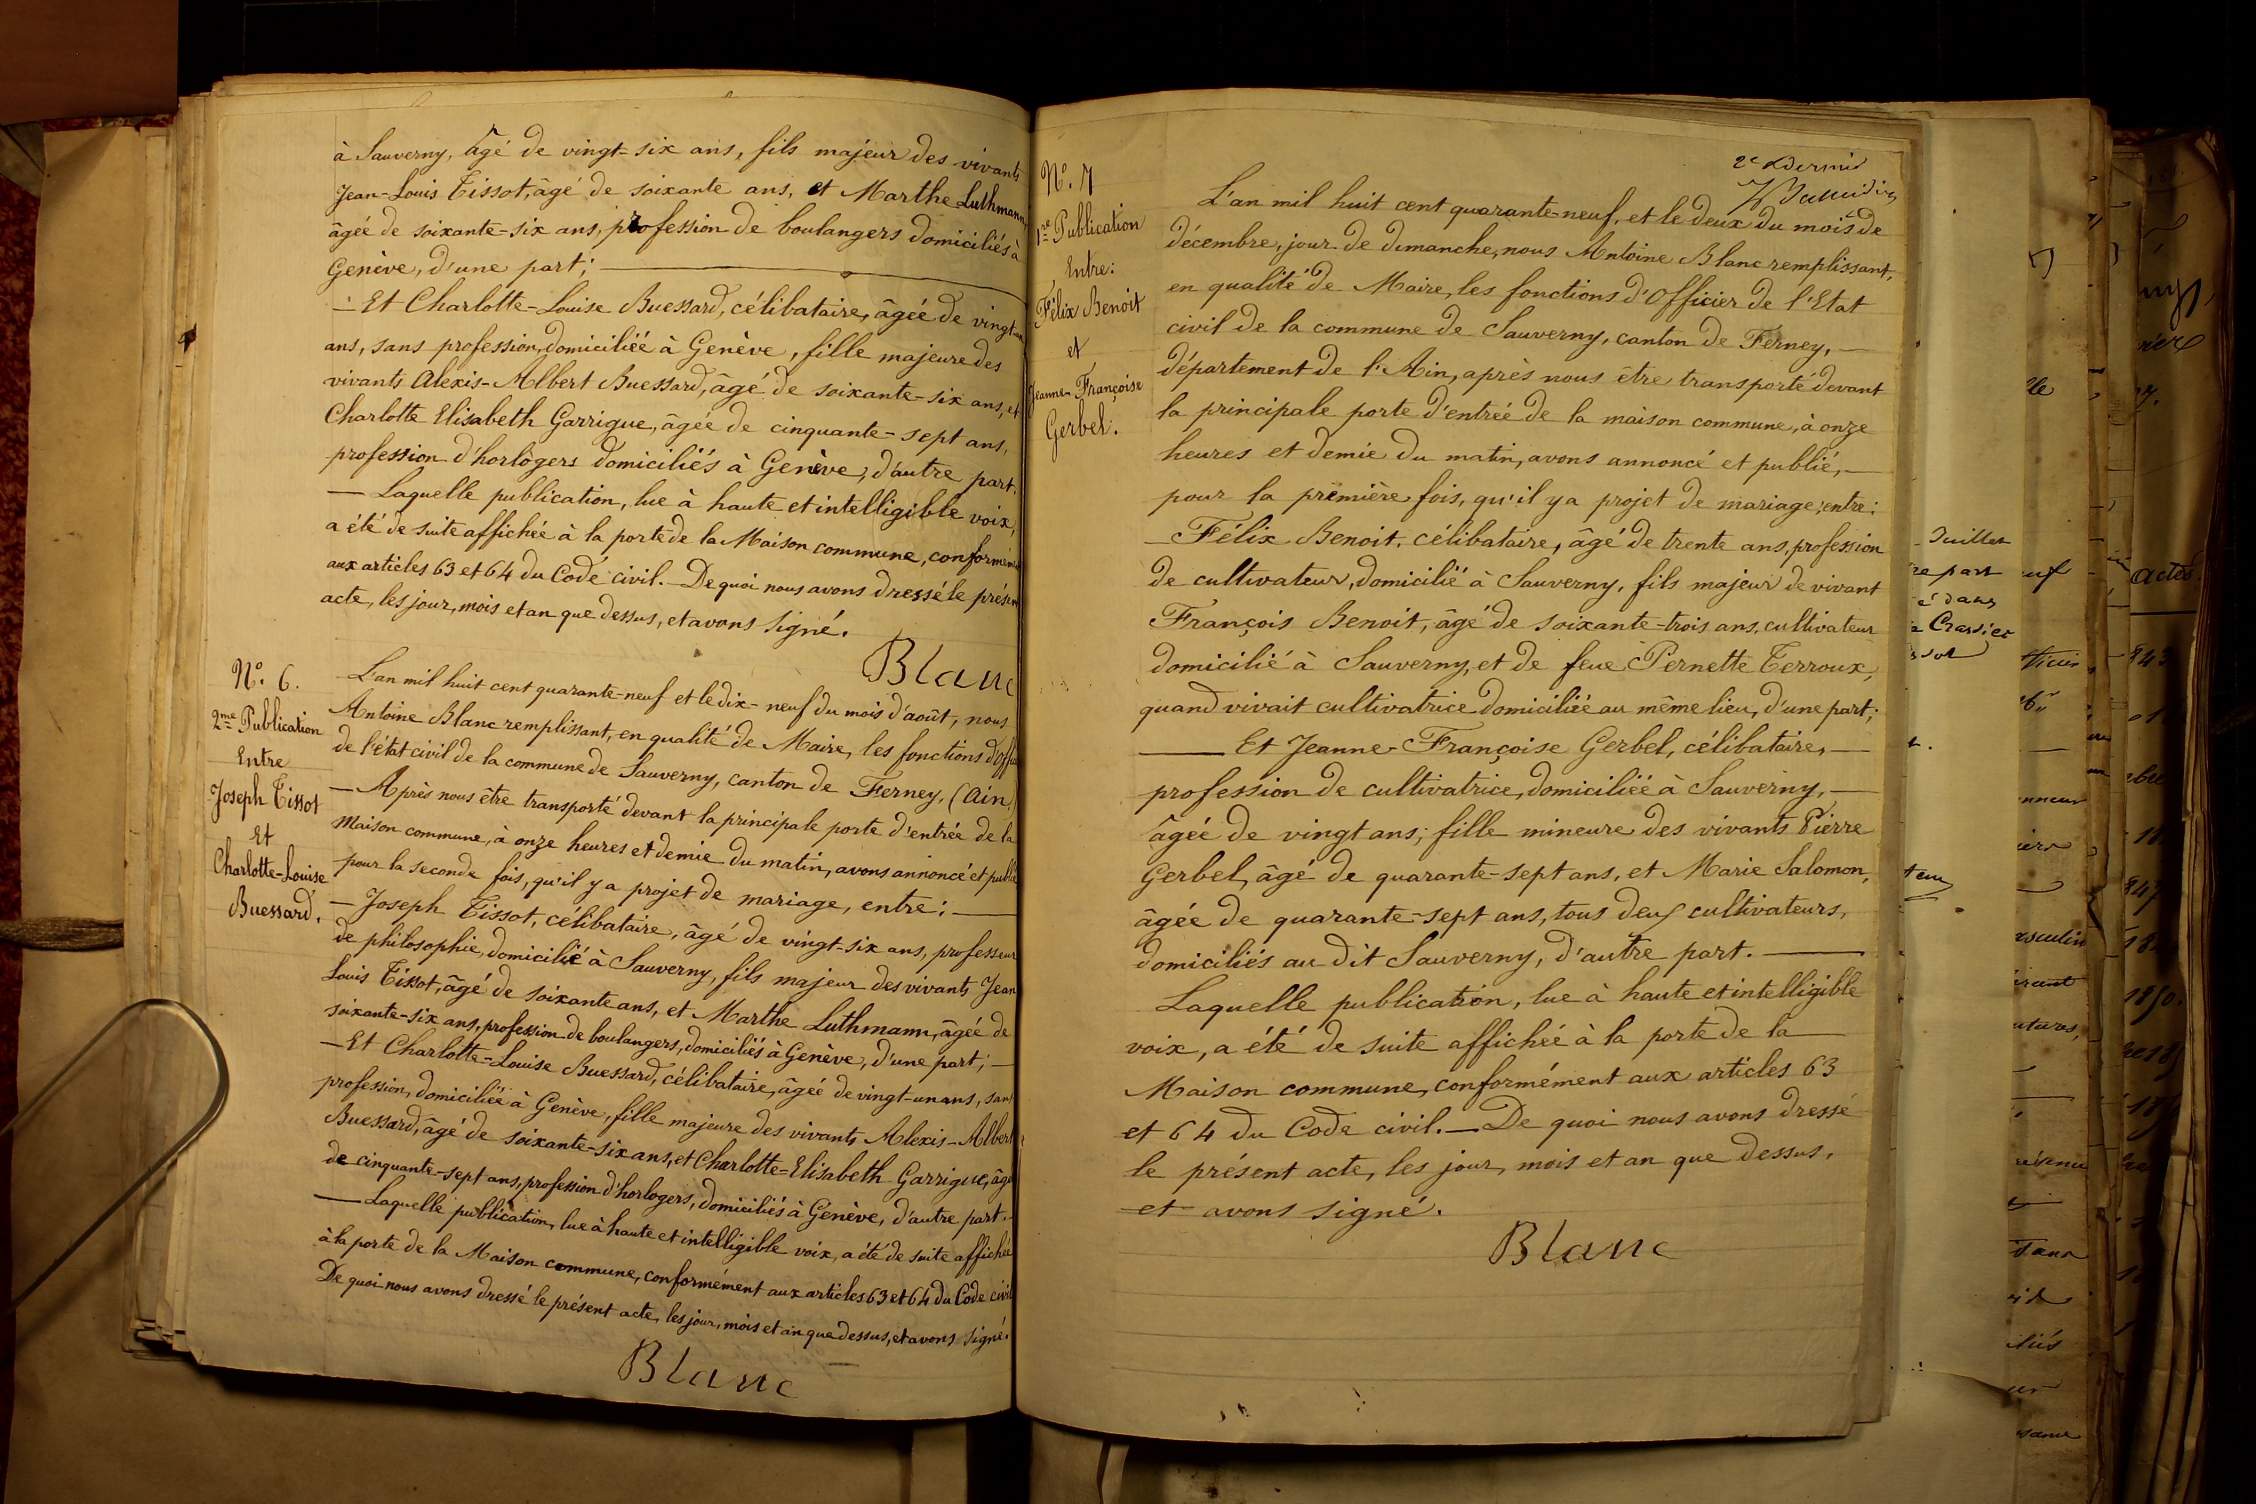 à Sauverny, âgé de vingt-six ans, fils majeur des vivants
Jean-Louis Tissot, âgé de soixante ans, et Marthe Luthmann,
âgée de soixante-six ans, profession de boulangers domiciliés à
Genève, d'une part;
— Et Charlotte-Louise Buessard, célibataire, âgée de vingt-un
ans, sans profession, domiciliée à Genève, fille majeure des
vivants Alexis-Albert Buessard, âgé de soixante-six ans, et
Charlotte Elisabeth Garrigue, âgée de cinquante-sept ans,
profession d'horlogers domiciliés à Genève, d'autre part.
— Laquelle publication, lue à haute et intelligible voix,
a été de suite affichée à la porte de la Maison commune, conformément
aux articles 63 et 64 du Code civil. De quoi nous avons dressé le présent
acte, les jour, mois et an que dessus, et avons signé.
Blanc
N.º 6.
2me Publication
Entre
Joseph Tissot
Et
Charlotte-Louise
Buessard.
L'an mil huit cent quarante-neuf et le dix-neuf du mois d'août, nous
Antoine Blanc remplissant, en qualité de Maire, les fonctions d'Offi
de l'état civil de la commune de Sauverny, canton de Ferney, (Ain)
— Après nous être transporté devant la principale porte d'entrée de la
Maison commune, à onze heures et demie du matin, avons annoncé et publié
pour la seconde fois, qu'il y a projet de mariage, entre: —
— Joseph Tissot, célibataire, âgé de vingt-six ans, professeur
de philosophie, domicilié à Sauverny, fils majeur des vivants Jean
Louis Tissot, âgé de soixante ans, et Marthe Luthmann, âgée de
soixante-six ans, profession de boulangers, domiciliés à Genève, d'une part; —
— Et Charlotte-Louise Buessard, célibataire, âgée de vingt-un ans, sans
profession, domiciliée à Genève, fille majeure des vivants Alexis-Albert
Buessard, âgé de soixante-six ans, et Charlotte-Elisabeth Garrigue, âgé
de cinquante-sept ans, profession d'horlogers, domiciliés à Genève, d'autre part.
— Laquelle publication, lue à haute et intelligible voix, a été de suite affichée
à la porte de la Maison commune, conformément aux articles 63 et 64 du Code civil
De quoi nous avons dressé le présent acte, les jour, mois et an que dessus, et avons signé.
Blanc
N.º 7
1re Publication
Entre:
Félix Benoit
et
Jeanne-Françoise
Gerbel.
L'an mil huit cent quarante-neuf, et le deux du mois de
décembre, jour de dimanche, nous Antoine Blanc remplissant,
en qualité de Maire, les fonctions d'Officier de l'Etat
civil de la commune de Sauverny, canton de Ferney, —
département de l'Ain, après nous être transporté devant
la principale porte d'entrée de la maison commune, à onze
heures et demie du matin, avons annoncé et publié, —
pour la première fois, qu'il y a projet de mariage, entre:
— Félix Benoit, célibataire, âgé de trente ans, profession
de cultivateur, domicilié à Sauverny, fils majeur de vivant
François Benoit, âgé de soixante-trois ans, cultivateur
domicilié à Sauverny, et de feue Pernette Terroux,
quand vivait cultivatrice domiciliée au même lieu, d'une part;
— Et Jeanne-Françoise Gerbel, célibataire, —
profession de cultivatrice, domiciliée à Sauverny, —
âgée de vingt ans; fille mineure des vivants Pierre
Gerbel, âgé de quarante-sept ans, et Marie Salomon,
âgée de quarante-sept ans, tous deux cultivateurs,
domiciliés au dit Sauverny, d'autre part. —
Laquelle publication, lue à haute et intelligible
voix, a été de suite affichée à la porte de la
Maison commune, conformément aux articles 63
et 64 du Code civil. — De quoi nous avons dressé
le présent acte, les jour, mois et an que dessus,
et avons signé.
Blanc
Juillet
re part
é dans
Crassier
actes